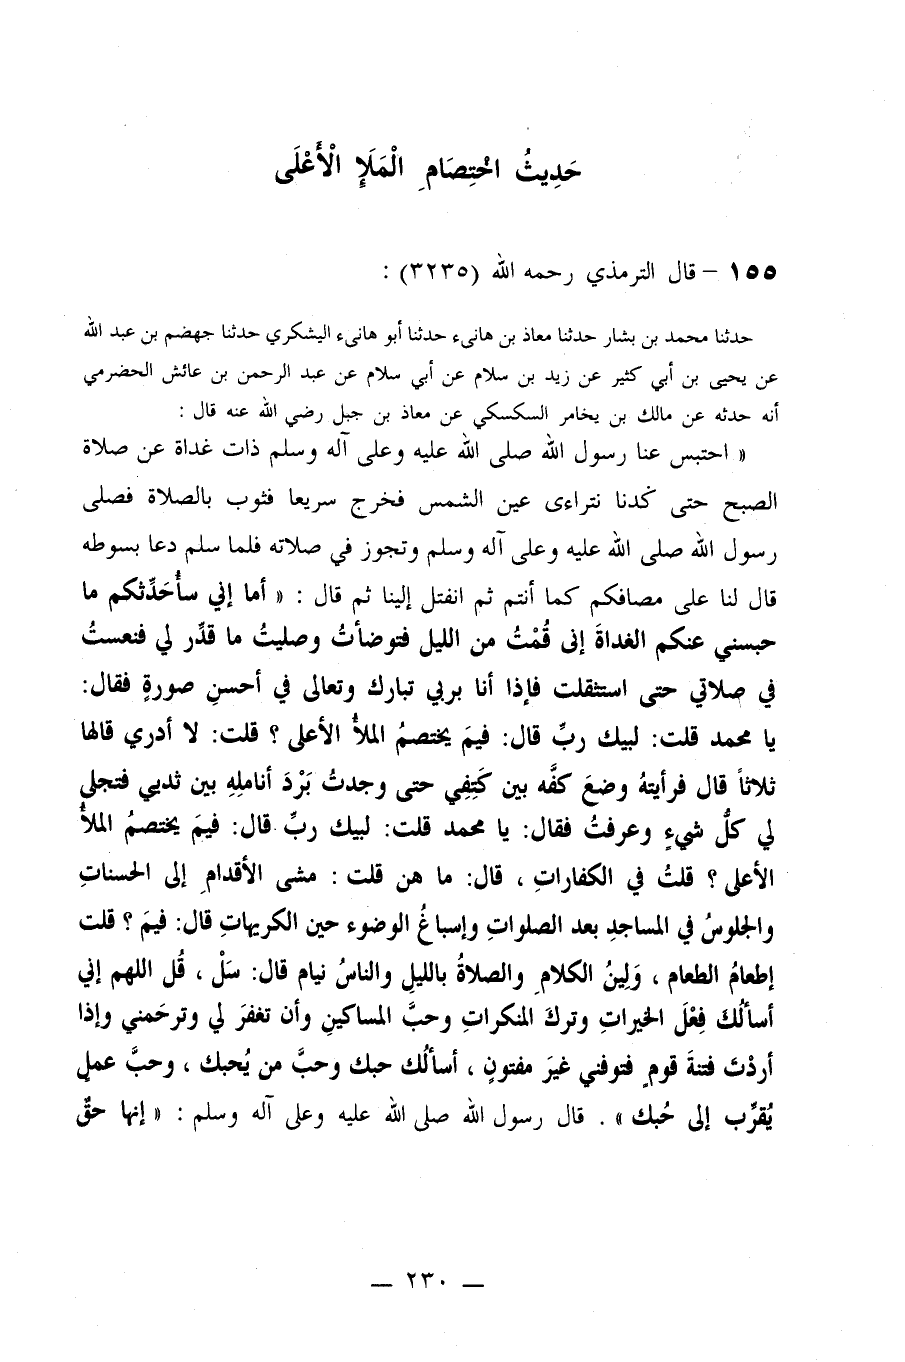 حَدِيثُ اخْتِصَامِ الْمَلَإِ الْأَعْلَى
١٥٥ – قال الترمذي رحمه الله (٣٢٣٥) :
حدثنا محمد بن بشار حدثنا معاذ بن هانىء حدثنا أبو هانىء اليشكري حدثنا جهضم بن عبد الله
عن يحيى بن أبي كثير عن زيد بن سلام عن أبي سلام عن عبد الرحمن بن عائش الحضرمي
أنه حدثه عن مالك بن يخامر السكسكي عن معاذ بن جبل رضي الله عنه قال :
« احتبس عنا رسول الله صلى الله عليه وعلى آله وسلم ذات غداة عن صلاة
الصبح حتى كدنا نتراءى عين الشمس فخرج سريعا فثوب بالصلاة فصلى
رسول الله صلى الله عليه وعلى آله وسلم وتجوز في صلاته فلما سلم دعا بسوطه
قال لنا على مصافكم كما أنتم ثم انفتل إلينا ثم قال : « أما إني سأُحَدِّثكم ما
حبسني عنكم الغداةَ إنى قُمْتُ من الليل فتوضأتُ وصليتُ ما قدِّر لي فنعستُ
في صلاتي حتى استثقلت فإذا أنا بربي تبارك وتعالى في أحسنِ صورةٍ فقال:
يا محمد قلت: لبيك ربِّ قال: فيمَ يختصمُ الملأُ الأعلى ؟ قلت: لا أدري قالها
ثلاثاً قال فرأيتهُ وضعَ كفَّه بين كَتِفِي حتى وجدتُ بَرْدَ أناملِهِ بين ثديي فتجلى
لي كلُّ شيءٍ وعرفتُ فقال: يا محمد قلت: لبيك ربِّ قال: فيمَ يختصمُ الملأُ
الأعلى ؟ قلتُ في الكفاراتِ ، قال: ما هن قلت : مشى الأقدامِ إلى الحسناتِ
والجلوسُ في المساجدِ بعد الصلواتِ وإسباغُ الوضوء حين الكريهاتِ قال: فيمَ ؟ قلت
إطعامُ الطعام ، وَلِينُ الكلامِ والصلاةُ بالليلِ والناسُ نيام قال: سَلْ ، قُل اللهم إني
أسألُكَ فِعْلَ الخيراتِ وتركَ المنكراتِ وحبَّ المساكينِ وأن تغفرَ لي وترحَمني وإذا
أردْتَ فتنةَ قومٍ فتوفني غيرَ مفتونٍ ، أسألُك حبك وحبَّ من يُحبك ، وحبَّ عملٍ
يُقرِّب إلى حُبك » . قال رسول الله صلى الله عليه وعلى آله وسلم : « إنها حقٌ
— ٢٣٠ —